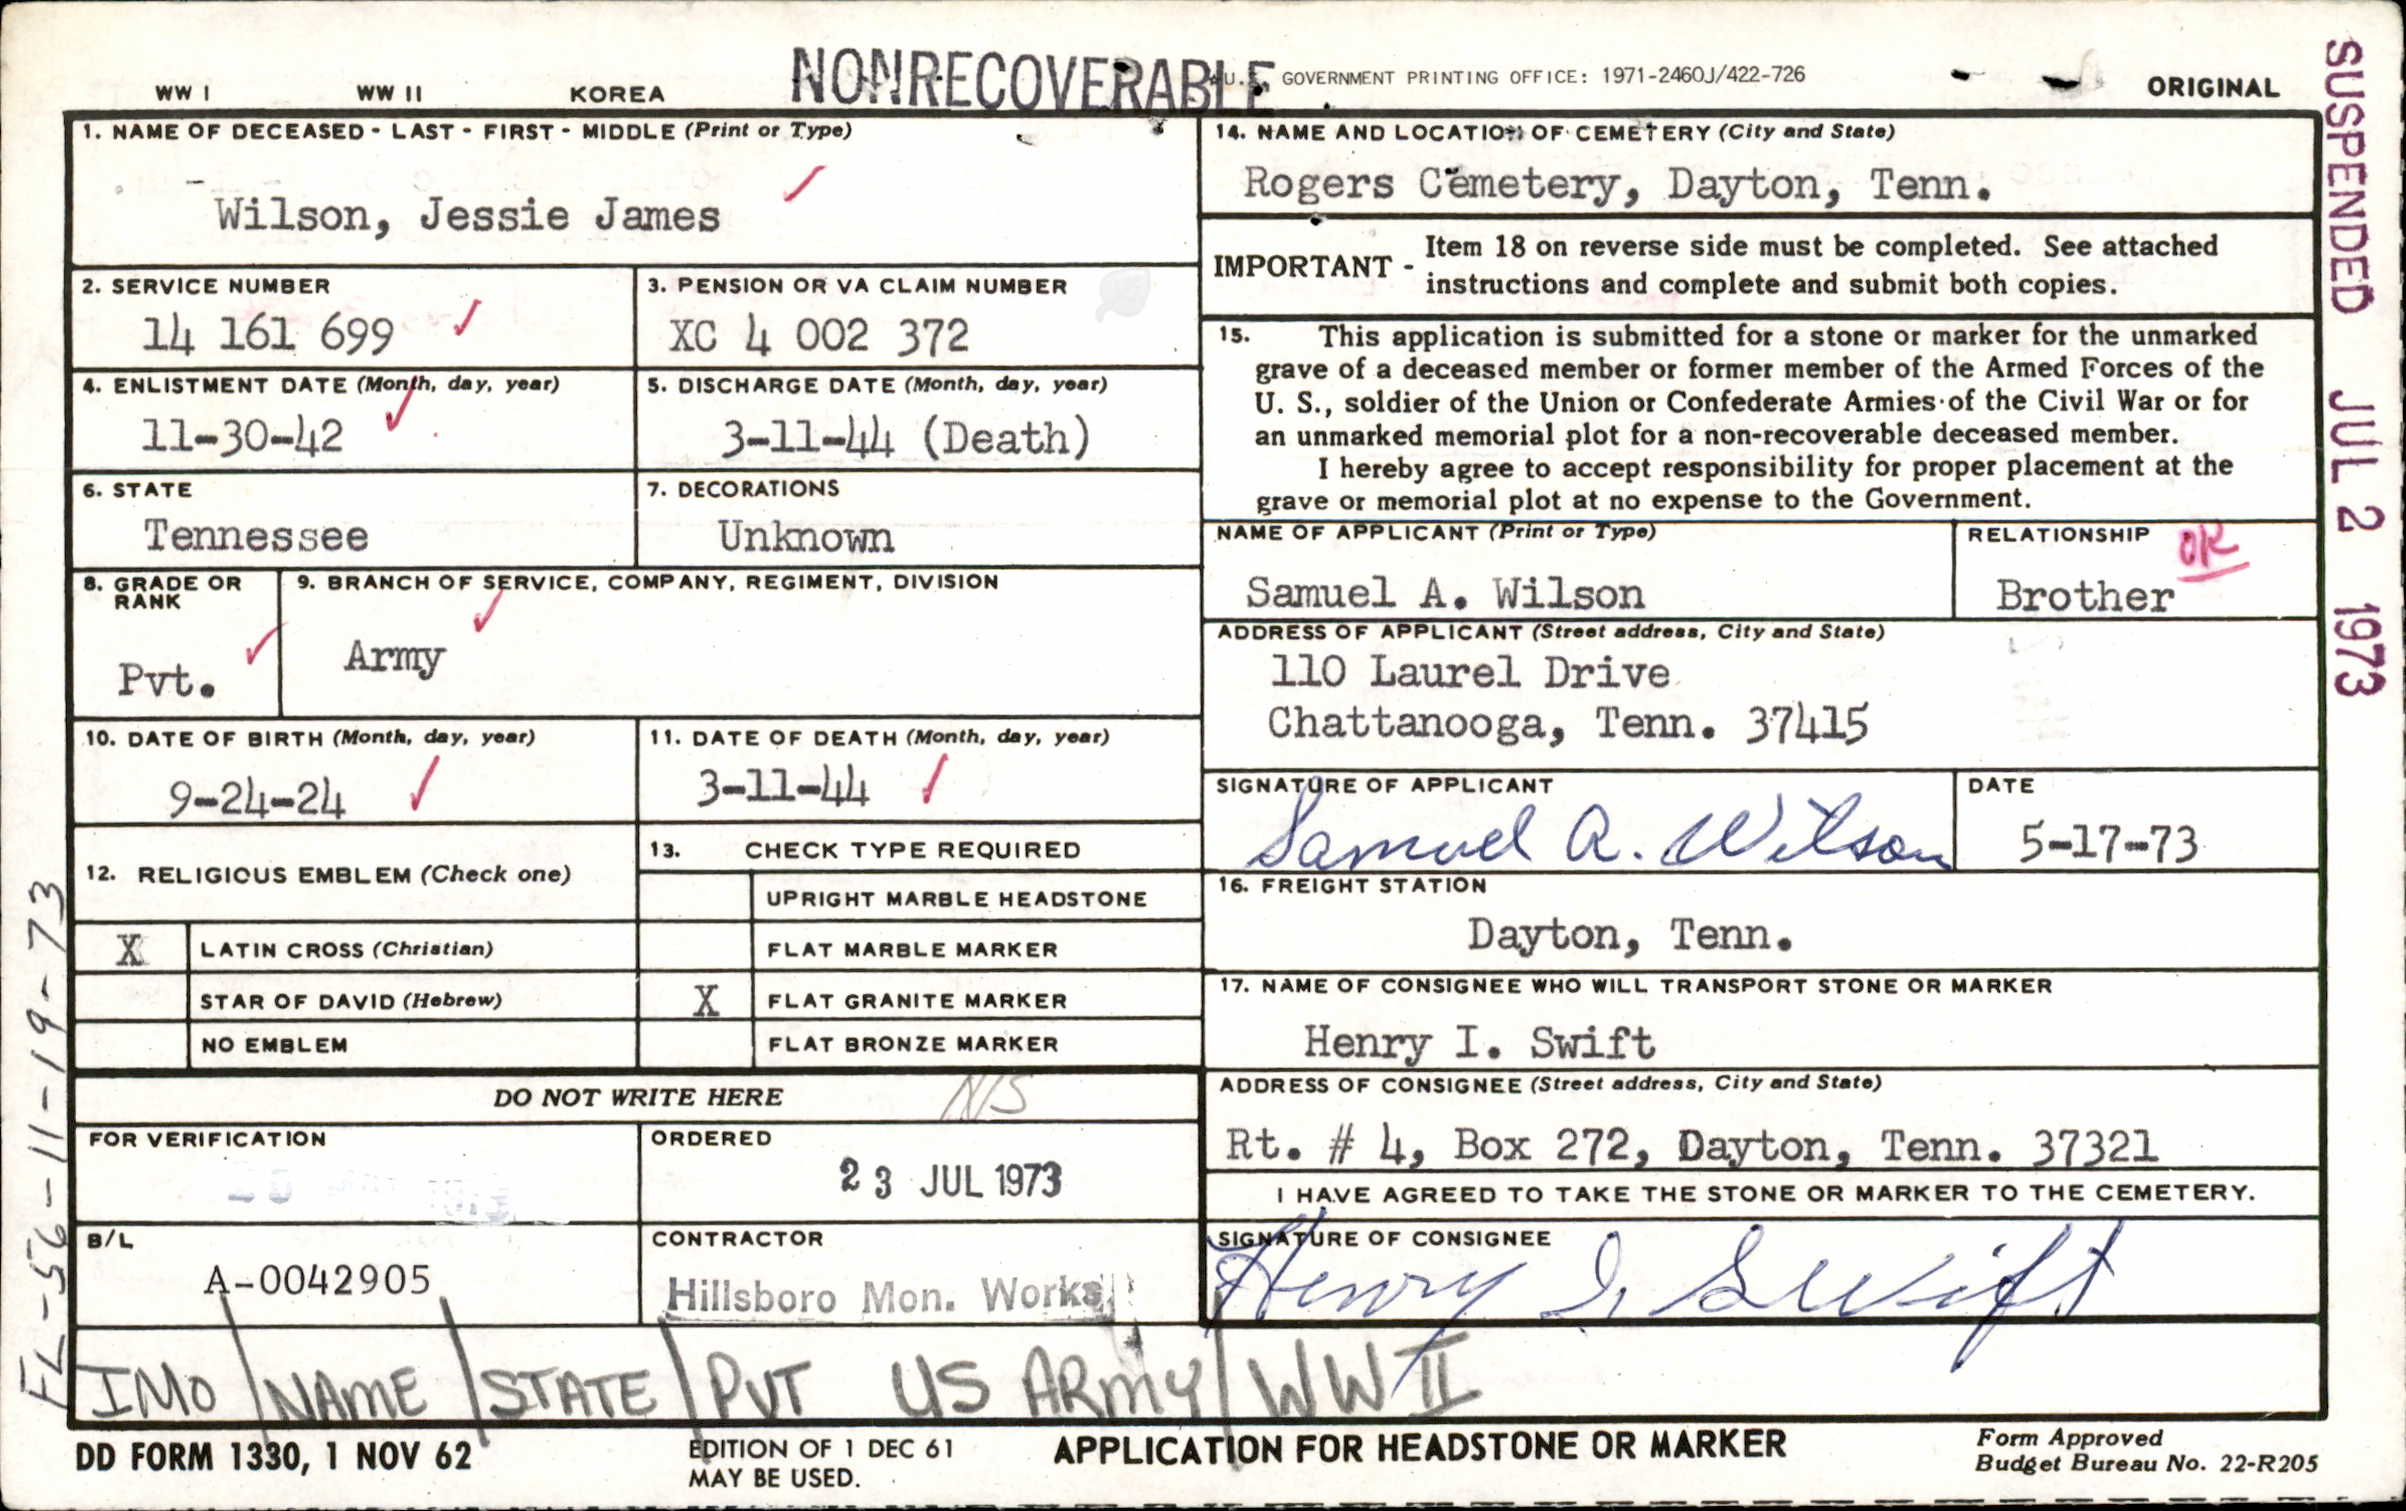 NONRECOVERABLE
WW I WW II KOREA U.S. GOVERNMENT PRINTING OFFICE: 1971-2460J/422-726 ORIGINAL
SUSPENDED JUL 2 1973
1. NAME OF DECEASED - LAST - FIRST - MIDDLE (Print or Type)
Wilson, Jessie James
2. SERVICE NUMBER
14 161 699
3. PENSION OR VA CLAIM NUMBER
XC 4 002 372
4. ENLISTMENT DATE (Month, day, year)
11-30-42
5. DISCHARGE DATE (Month, day, year)
3-11-44 (Death)
6. STATE
Tennessee
7. DECORATIONS
Unknown
8. GRADE OR
RANK
Pvt.
9. BRANCH OF SERVICE, COMPANY, REGIMENT, DIVISION
Army
10. DATE OF BIRTH (Month, day, year)
9-24-24
11. DATE OF DEATH (Month, day, year)
3-11-44
12. RELIGIOUS EMBLEM (Check one)
X LATIN CROSS (Christian)
STAR OF DAVID (Hebrew)
NO EMBLEM
13. CHECK TYPE REQUIRED
UPRIGHT MARBLE HEADSTONE
FLAT MARBLE MARKER
X FLAT GRANITE MARKER
FLAT BRONZE MARKER
DO NOT WRITE HERE N/S
FOR VERIFICATION
ORDERED
23 JUL 1973
B/L
A-0042905
CONTRACTOR
Hillsboro Mon. Works
14. NAME AND LOCATION OF CEMETERY (City and State)
Rogers Cemetery, Dayton, Tenn.
IMPORTANT - Item 18 on reverse side must be completed. See attached
instructions and complete and submit both copies.
15. This application is submitted for a stone or marker for the unmarked
grave of a deceased member or former member of the Armed Forces of the
U. S., soldier of the Union or Confederate Armies of the Civil War or for
an unmarked memorial plot for a non-recoverable deceased member.
I hereby agree to accept responsibility for proper placement at the
grave or memorial plot at no expense to the Government.
NAME OF APPLICANT (Print or Type)
Samuel A. Wilson
RELATIONSHIP OK
Brother
ADDRESS OF APPLICANT (Street address, City and State)
110 Laurel Drive
Chattanooga, Tenn. 37415
SIGNATURE OF APPLICANT
Samuel A. Wilson
DATE
5-17-73
16. FREIGHT STATION
Dayton, Tenn.
17. NAME OF CONSIGNEE WHO WILL TRANSPORT STONE OR MARKER
Henry I. Swift
ADDRESS OF CONSIGNEE (Street address, City and State)
Rt. # 4, Box 272, Dayton, Tenn. 37321
I HAVE AGREED TO TAKE THE STONE OR MARKER TO THE CEMETERY.
SIGNATURE OF CONSIGNEE
Henry I. Swift
FL-56-11-19-73
IMO/NAME/STATE/PVT US ARMY/WW II
DD FORM 1330, 1 NOV 62
EDITION OF 1 DEC 61
MAY BE USED.
APPLICATION FOR HEADSTONE OR MARKER
Form Approved
Budget Bureau No. 22-R205